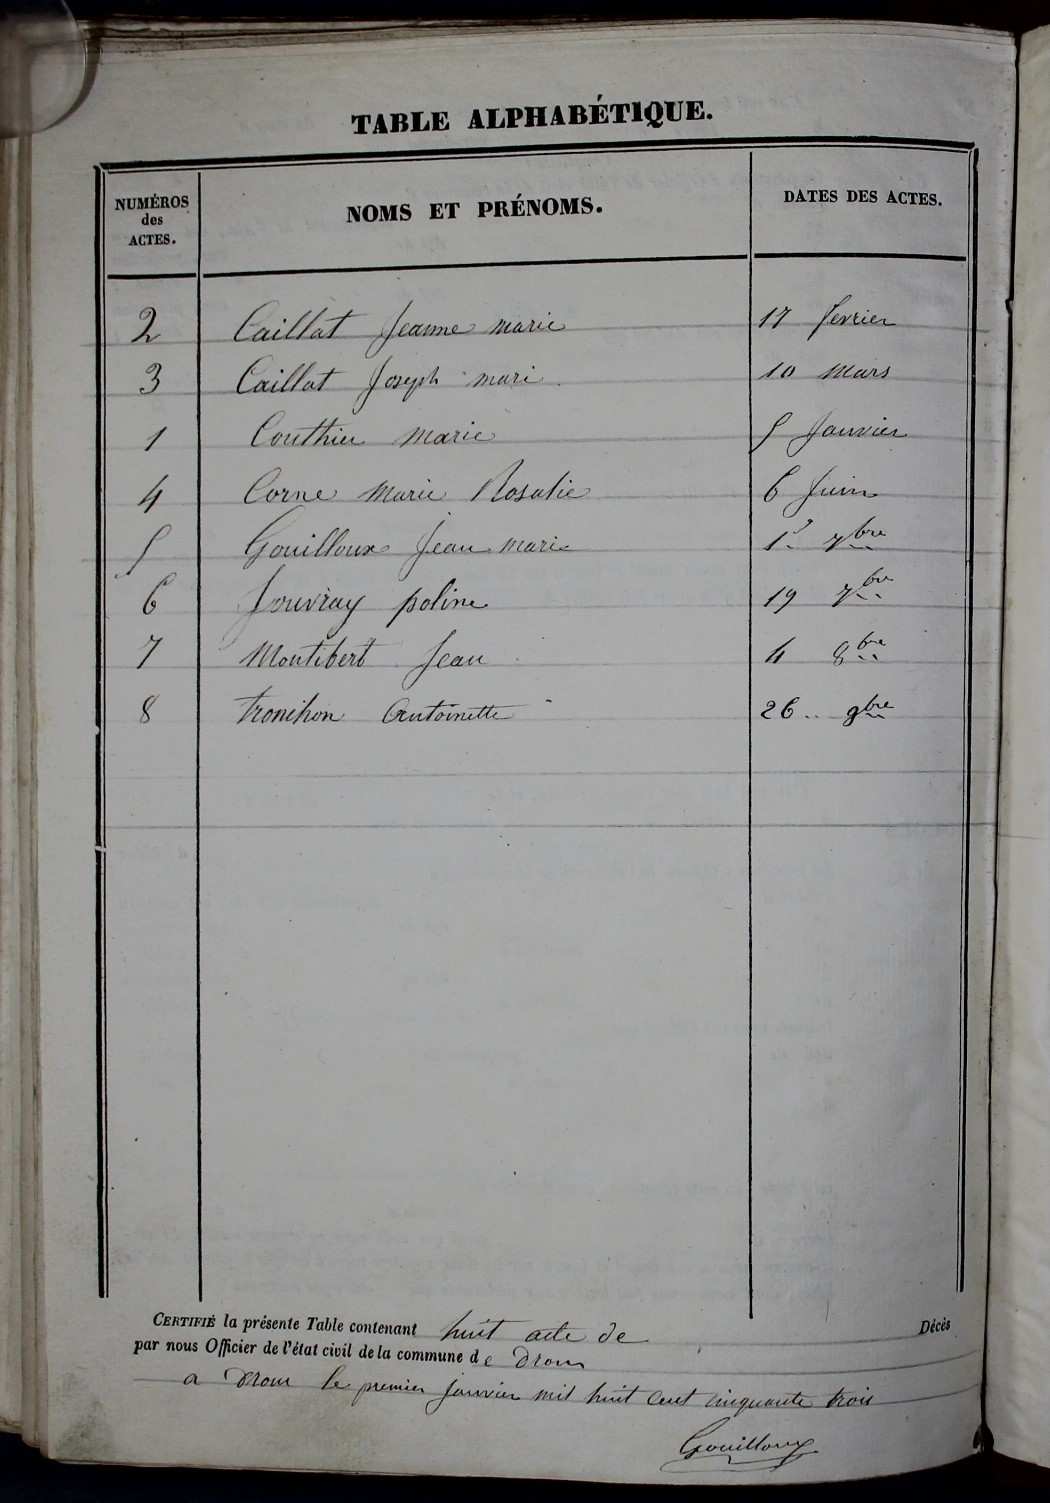 TABLE ALPHABÉTIQUE.
NUMÉROS des ACTES.
NOMS ET PRÉNOMS.
DATES DES ACTES.
2 Caillat Jeanne marie 17 fevrier
3 Caillat Joseph mari 10 mars
1 Couthier marie 5 Janvier
4 Corne Marie Rosalie 6 Juin
5 Gouilloux Jean marie 1er 7bre
6 Jouvray poline 19 7bre
7 Montibert Jean 4 8bre
8 tronchon Antoinette 26 9bre
CERTIFIÉ la présente Table contenant huit acte de Décès
par nous Officier de l'état civil de la commune de Drom
a Drom le premier janvier mil huit cent cinquante trois
Gouilloux